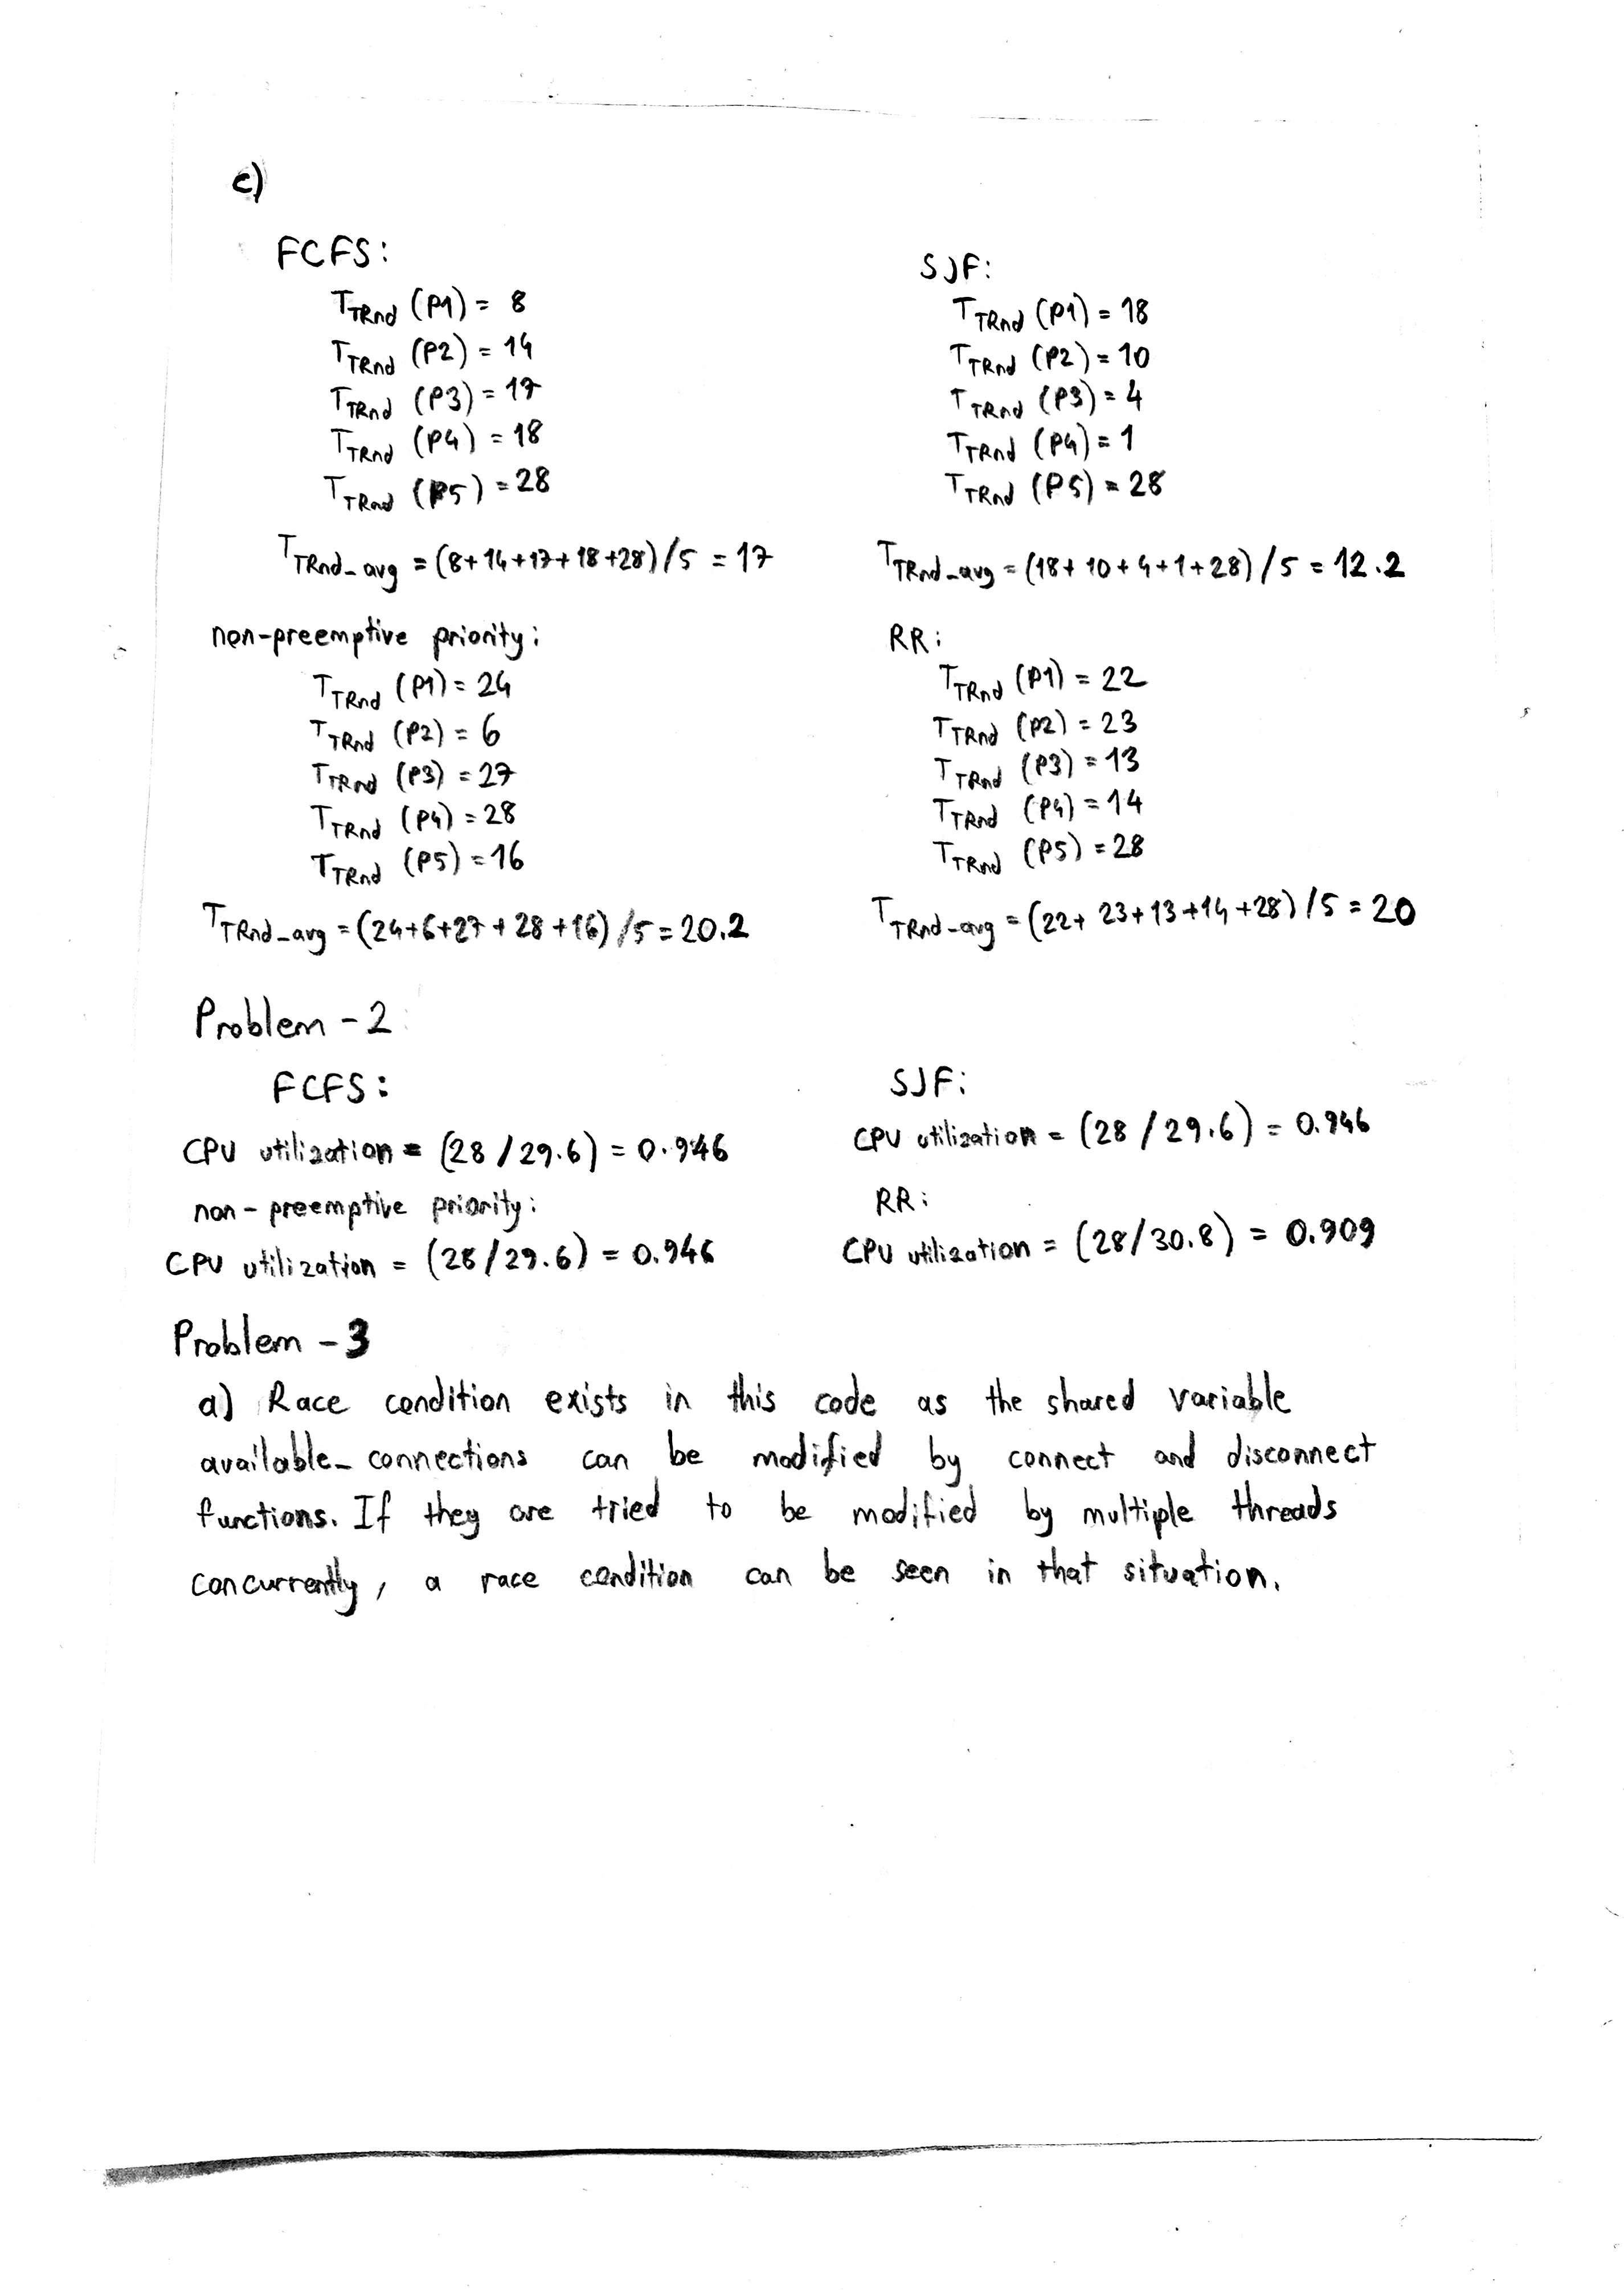 c)
FCFS:
T_TRnd (P1) = 8
T_TRnd (P2) = 14
T_TRnd (P3) = 17
T_TRnd (P4) = 18
T_TRnd (P5) = 28
T_TRnd_avg = (8+14+17+18+28)/5 = 17
SJF:
T_TRnd (P1) = 18
T_TRnd (P2) = 10
T_TRnd (P3) = 4
T_TRnd (P4) = 1
T_TRnd (P5) = 28
T_TRnd_avg = (18+10+4+1+28)/5 = 12.2
non-preemptive priority:
T_TRnd (P1) = 24
T_TRnd (P2) = 6
T_TRnd (P3) = 27
T_TRnd (P4) = 28
T_TRnd (P5) = 16
T_TRnd_avg = (24+6+27+28+16)/5 = 20.2
RR:
T_TRnd (P1) = 22
T_TRnd (P2) = 23
T_TRnd (P3) = 13
T_TRnd (P4) = 14
T_TRnd (P5) = 28
T_TRnd_avg = (22+23+13+14+28)/5 = 20
Problem - 2
FCFS:
CPU utilization = (28/29.6) = 0.946
SJF:
CPU utilization = (28/29.6) = 0.946
non-preemptive priority:
CPU utilization = (28/29.6) = 0.946
RR:
CPU utilization = (28/30.8) = 0.909
Problem - 3
a) Race condition exists in this code as the shared variable
available_connections can be modified by connect and disconnect
functions. If they are tried to be modified by multiple threads
concurrently, a race condition can be seen in that situation.